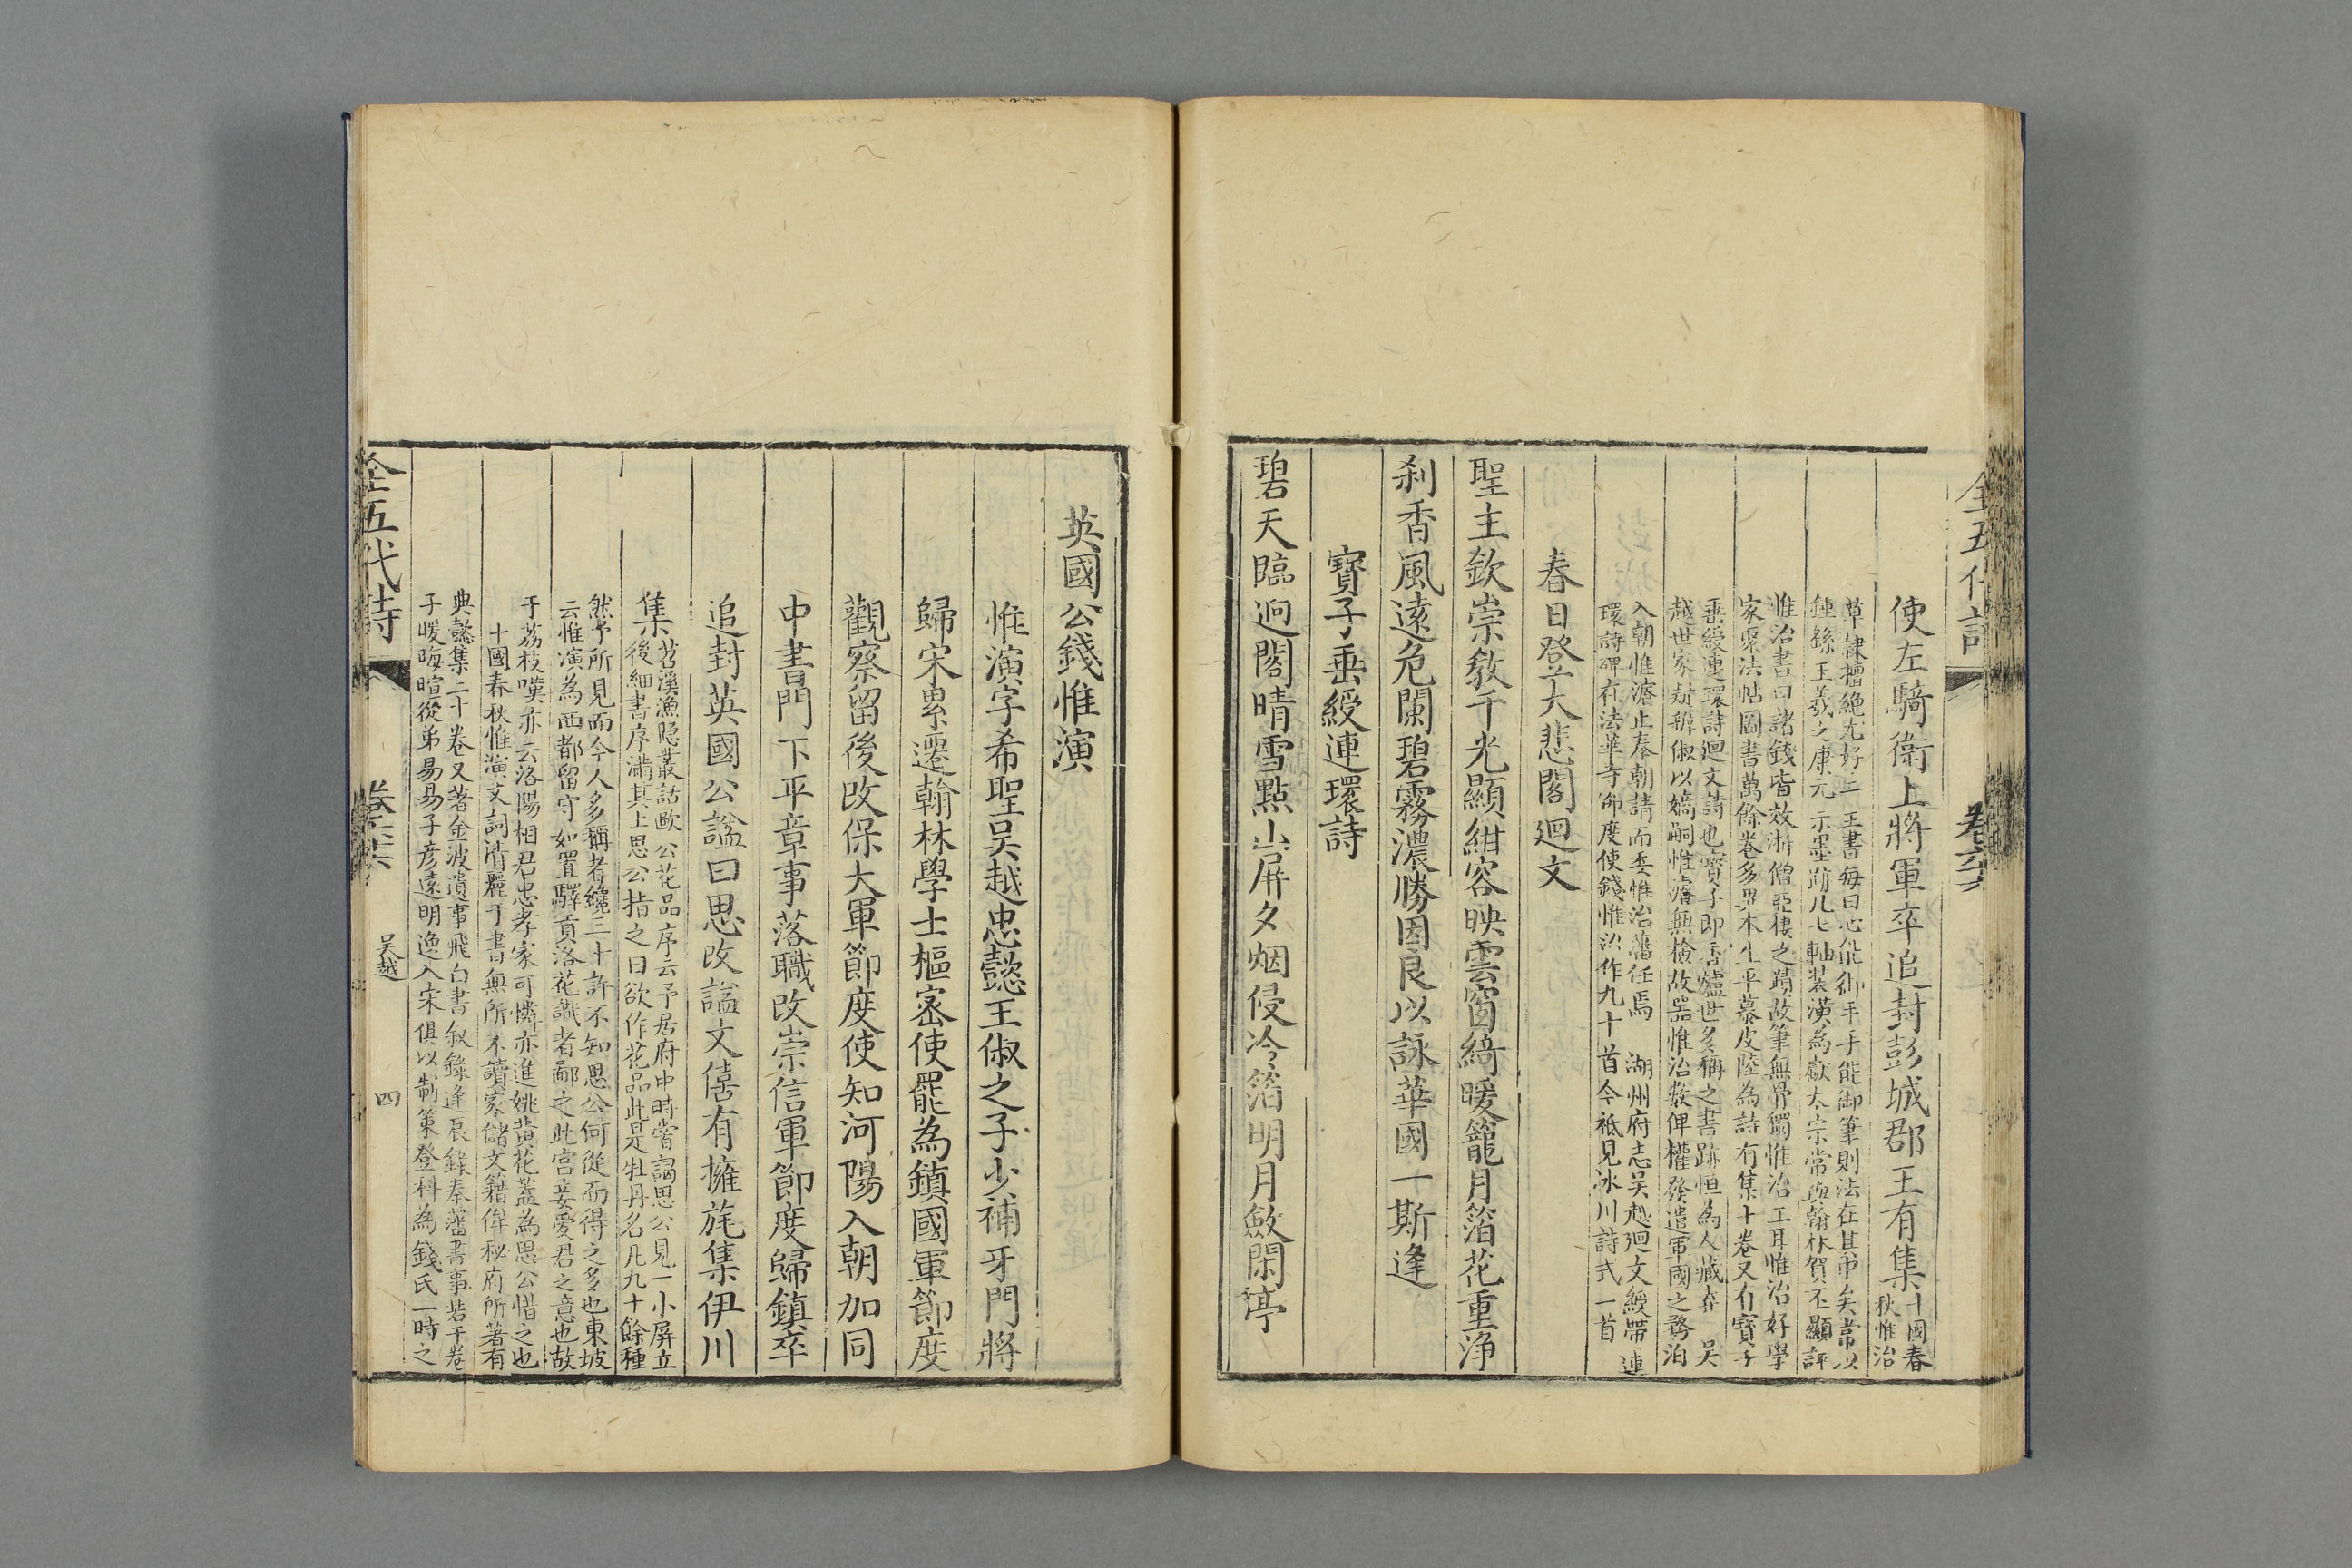 使左騎衛上將軍卒追封彭城郡王有集十國春
秋惟治
草隸擅絶尤好二王書每曰心能御手手能御筆則法在其中矣常以
鍾繇王羲之唐元示墨蹟凡七軸裝潢為獻太宗常與翰林賀丕顯評
惟治書曰諸錢皆效浙僧亞棲之蹟故筆無骨獨惟治工耳惟治好學
家聚法帖圖書萬餘卷多異本生平慕皮陸為詩有集十卷又有寶子
垂綬連環詩廻文詩也寶子即香爐世多稱之書跡恒為人藏弆 吳
越世家疑辨俶以嫡嗣惟濬無檢故器惟治數俾權發遣軍國之務洎
入朝惟濬止奉朝請而委惟治藩任焉 湖州府志吳越廻文綬帶連
環詩碑在法華寺節度使錢惟治作九十首今祗見冰川詩式一首
春日登大悲閣廻文
聖主欽崇敎千光顯紺容映雲窗綺暖籠月箔花重淨
刹香風遠危闌碧霧濃勝因良以詠華國一斯逢
寶子垂綬連環詩
碧天臨迥閣晴雪點山屏夕烟侵冷箔明月斂閑亭
英國公錢惟演
惟演字希聖吳越忠懿王俶之子少補牙門將
歸宋累遷翰林學士樞密使罷為鎮國軍節度
觀察留後改保大軍節度使知河陽入朝加同
中書門下平章事落職改崇信軍節度歸鎮卒
追封英國公諡曰思改諡文僖有擁旄集伊川
集苕溪漁隐叢話歐公花品序云予居府中時嘗謁思公見一小屏立
後細書字滿其上思公指之曰欲作花品此是牡丹名凡九十餘種
然予所見而今人多稱者纔三十許不知思公何從而得之多也東坡
云惟演為西都留守如置驛貢洛花識者鄙之此宮妾愛君之意也故
于荔枝嘆亦云洛陽相君忠孝家可憐亦進姚黄花蓋為思公惜之也
十國春秋惟演文詞清麗于書無所不讀家儲文籍侔秘府所著有
典懿集二十卷又著金波遺事飛白書叙錄逢辰錄奉藩書事若干卷
子曖晦暄從弟易易子彦遠明逸入宋俱以制策登科為錢氏一時之
全五代詩 吳越 四